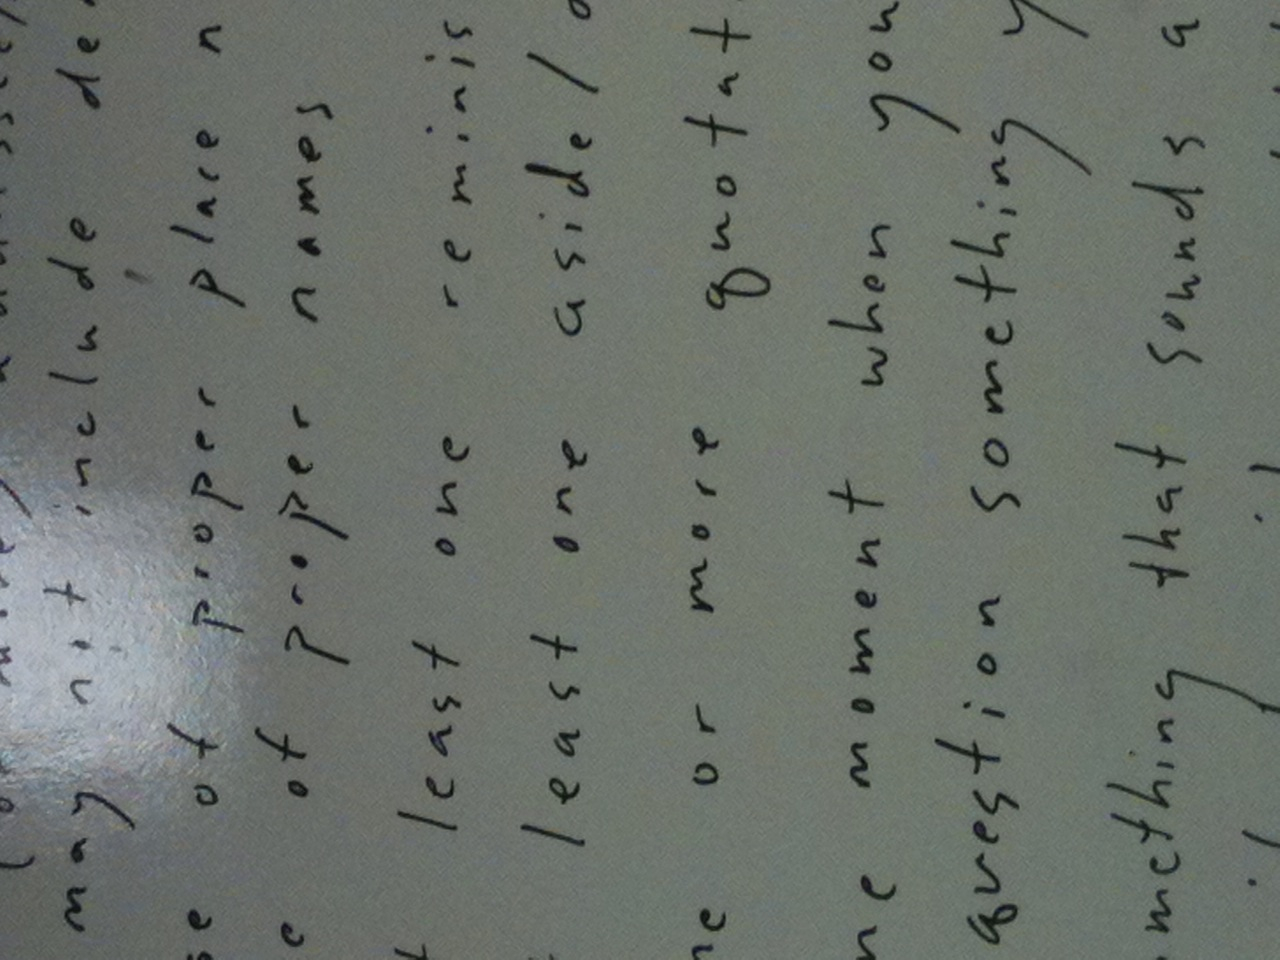 may not include de
of proper place n
of proper names
least one reminis
least one aside/
or more quotat
moment when you
question something y
mething that sounds a